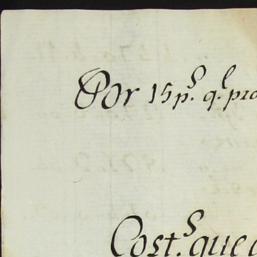 Por 15 p.s q.l pro
Cost.s que c